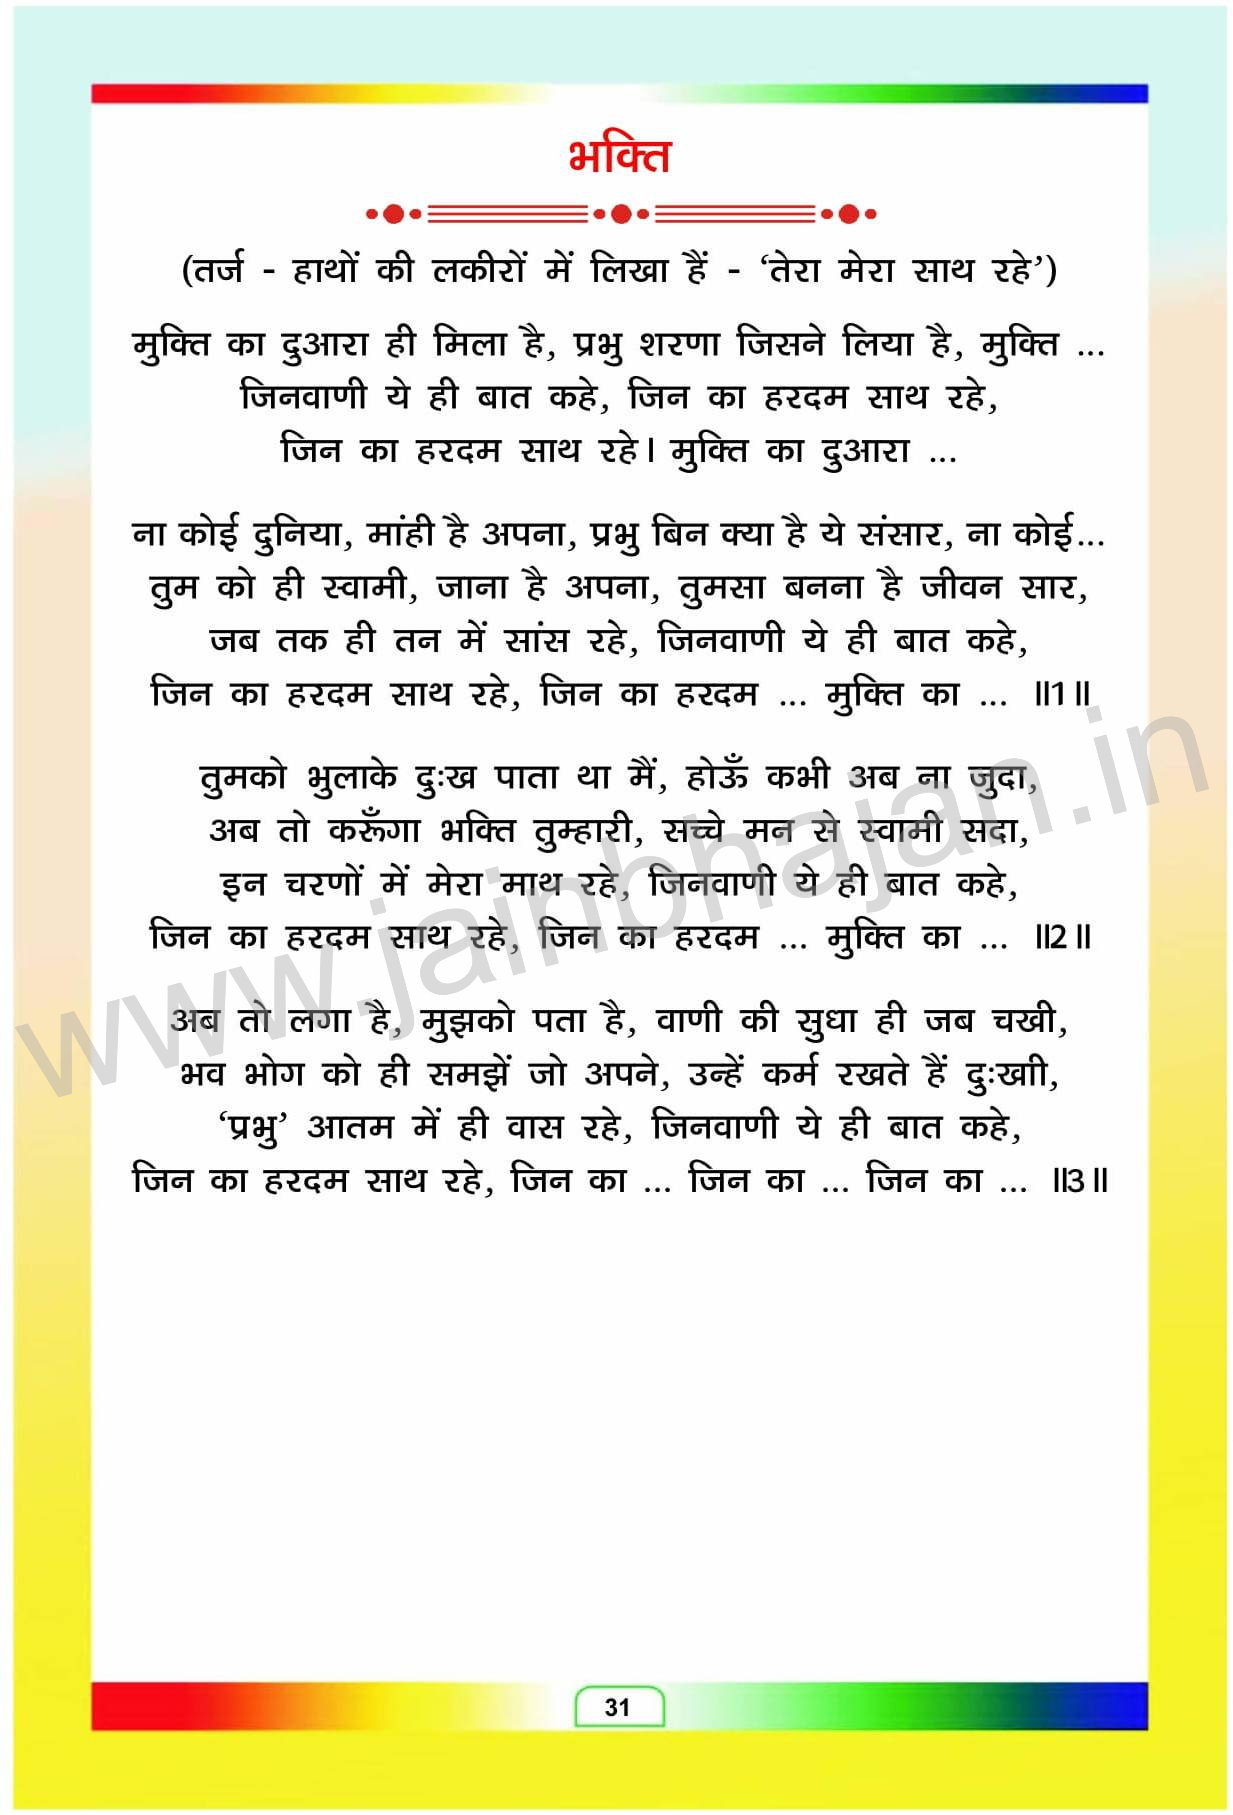 भक्ति
(तर्ज - हाथों की लकीरों में लिखा हैं - ‘तेरा मेरा साथ रहे’)
मुक्ति का दुआरा ही मिला है, प्रभु शरणा जिसने लिया है, मुक्ति ...
जिनवाणी ये ही बात कहे, जिन का हरदम साथ रहे,
जिन का हरदम साथ रहे। मुक्ति का दुआरा ...
ना कोई दुनिया, मांही है अपना, प्रभु बिन क्या है ये संसार, ना कोई...
तुम को ही स्वामी, जाना है अपना, तुमसा बनना है जीवन सार,
जब तक ही तन में सांस रहे, जिनवाणी ये ही बात कहे,
जिन का हरदम साथ रहे, जिन का हरदम ... मुक्ति का ... ॥1॥
तुमको भुलाके दुःख पाता था मैं, होऊँ कभी अब ना जुदा,
अब तो करूँगा भक्ति तुम्हारी, सच्चे मन से स्वामी सदा,
इन चरणों में मेरा माथ रहे, जिनवाणी ये ही बात कहे,
जिन का हरदम साथ रहे, जिन का हरदम ... मुक्ति का ... ॥2॥
अब तो लगा है, मुझको पता है, वाणी की सुधा ही जब चखी,
भव भोग को ही समझें जो अपने, उन्हें कर्म रखते हैं दुःखाी,
‘प्रभु’ आतम में ही वास रहे, जिनवाणी ये ही बात कहे,
जिन का हरदम साथ रहे, जिन का ... जिन का ... जिन का ... ॥3॥
www.jainbhajan.in
31